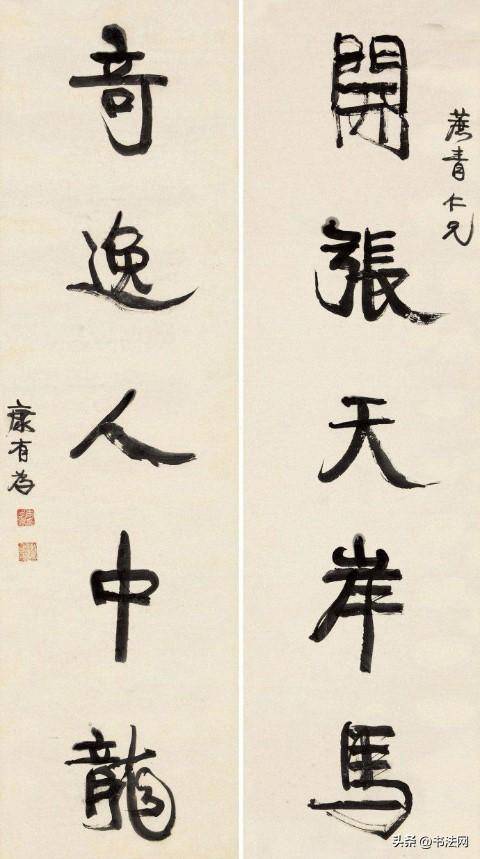 燕青仁兄
開張天岸馬
奇逸人中龍
康有為
头条@书法网